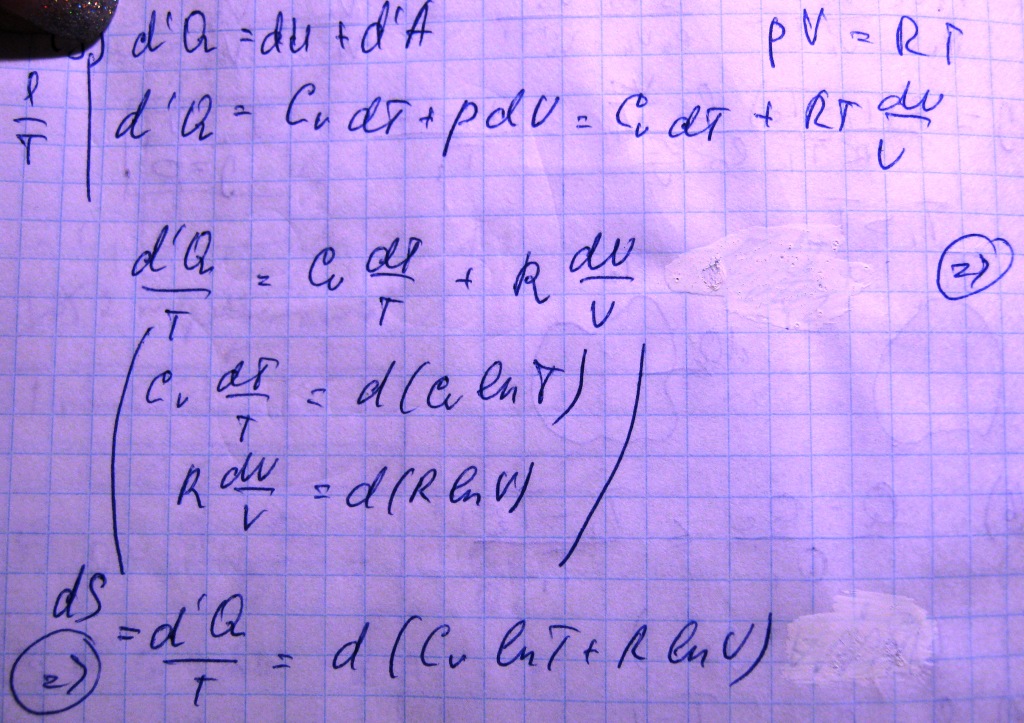 d'Q = dU + d'A pV = RT
1/T | d'Q = Cv dT + p dV = Cv dT + RT dV/V
d'Q/T = Cv dT/T + R dV/V =>
( Cv dT/T = d(Cv ln T)
R dV/V = d(R ln V) )
dS
=> = d'Q/T = d(Cv ln T + R ln V)